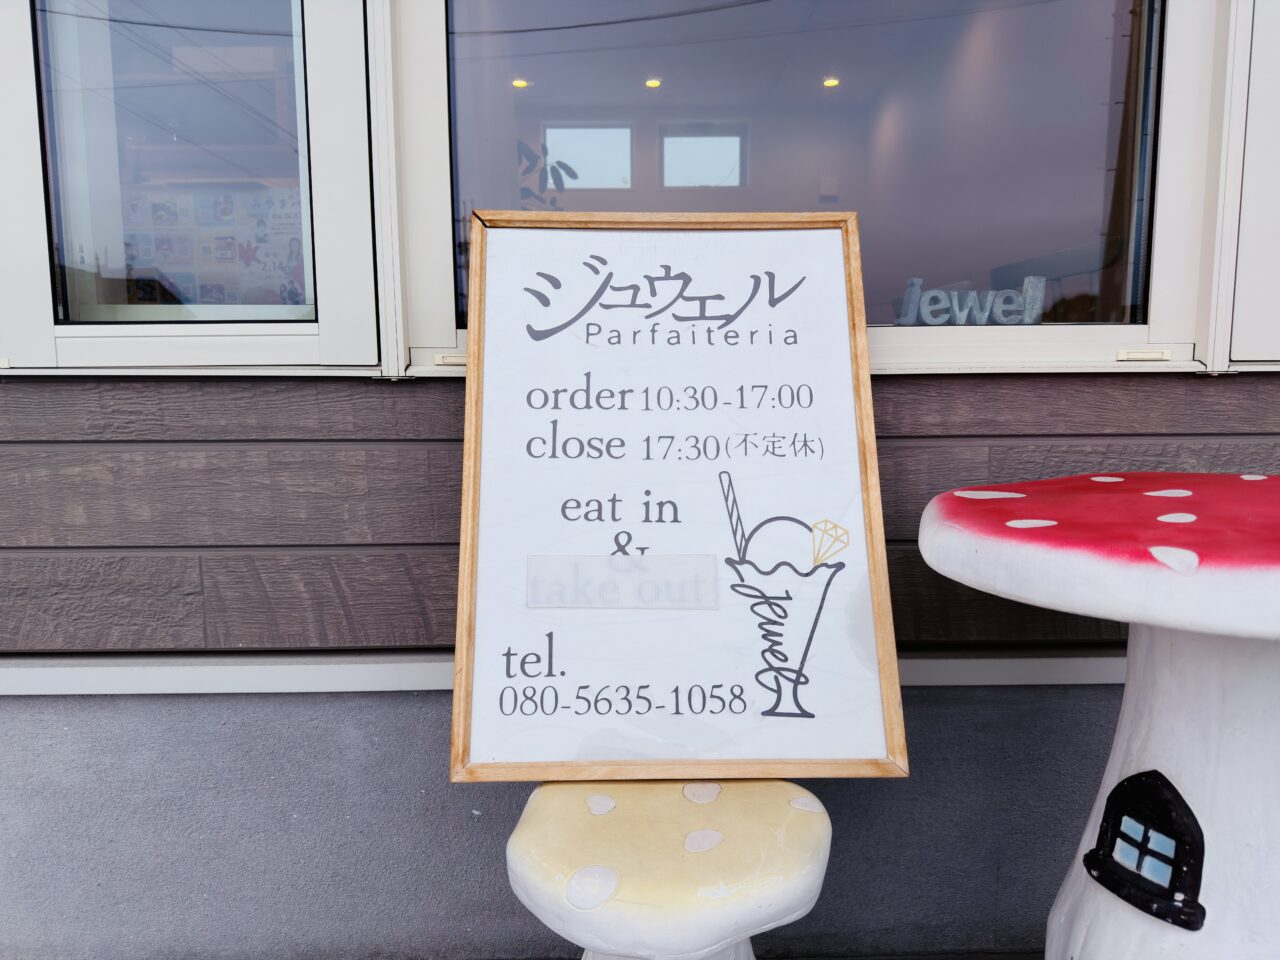 ジュウェル
Parfaiteria
order 10:30-17:00
close 17:30(不定休)
eat in
&
take out
Jewel
tel.
080-5635-1058
jewel